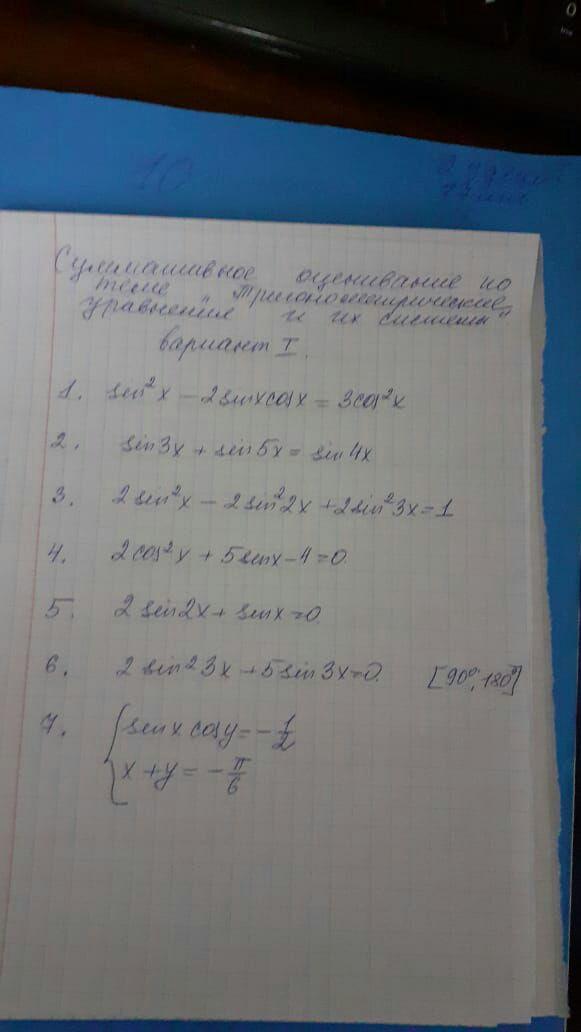 10
Суммативное оценивание по
теме "Тригонометрические
уравнения и их системы"
вариант I.
1. sin²x - 2sinxcosx = 3cos²x
2. sin3x + sin5x = sin4x
3. 2sin²x - 2sin²2x + 2sin²3x = 1
4. 2cos²x + 5sinx - 4 = 0
5. 2sin2x + sinx = 0
6. 2sin²3x + 5sin3x = 0. [90°; 180°]
7. { sinx cosy = - 1/2
x + y = - π/6